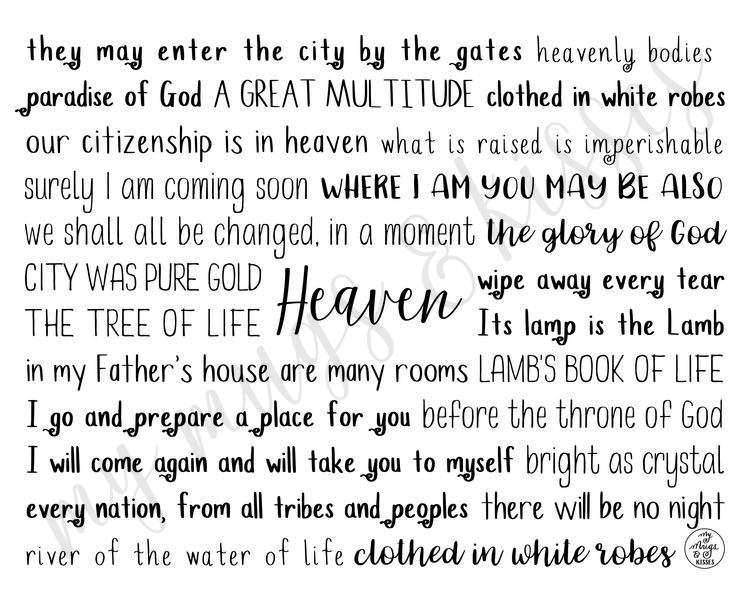 they may enter the city by the gates heavenly bodies
paradise of God A GREAT MULTITUDE clothed in white robes
our citizenship is in heaven what is raised is imperishable
surely I am coming soon WHERE I AM YOU MAY BE ALSO
we shall all be changed, in a moment the glory of God
CITY WAS PURE GOLD
THE TREE OF LIFE
Heaven
wipe away every tear
Its lamp is the Lamb
in my Father's house are many rooms LAMB'S BOOK OF LIFE
I go and prepare a place for you before the throne of God
I will come again and will take you to myself bright as crystal
every nation, from all tribes and peoples there will be no night
river of the water of life clothed in white robes
my Mugs & KISSES
my mugs & kisses